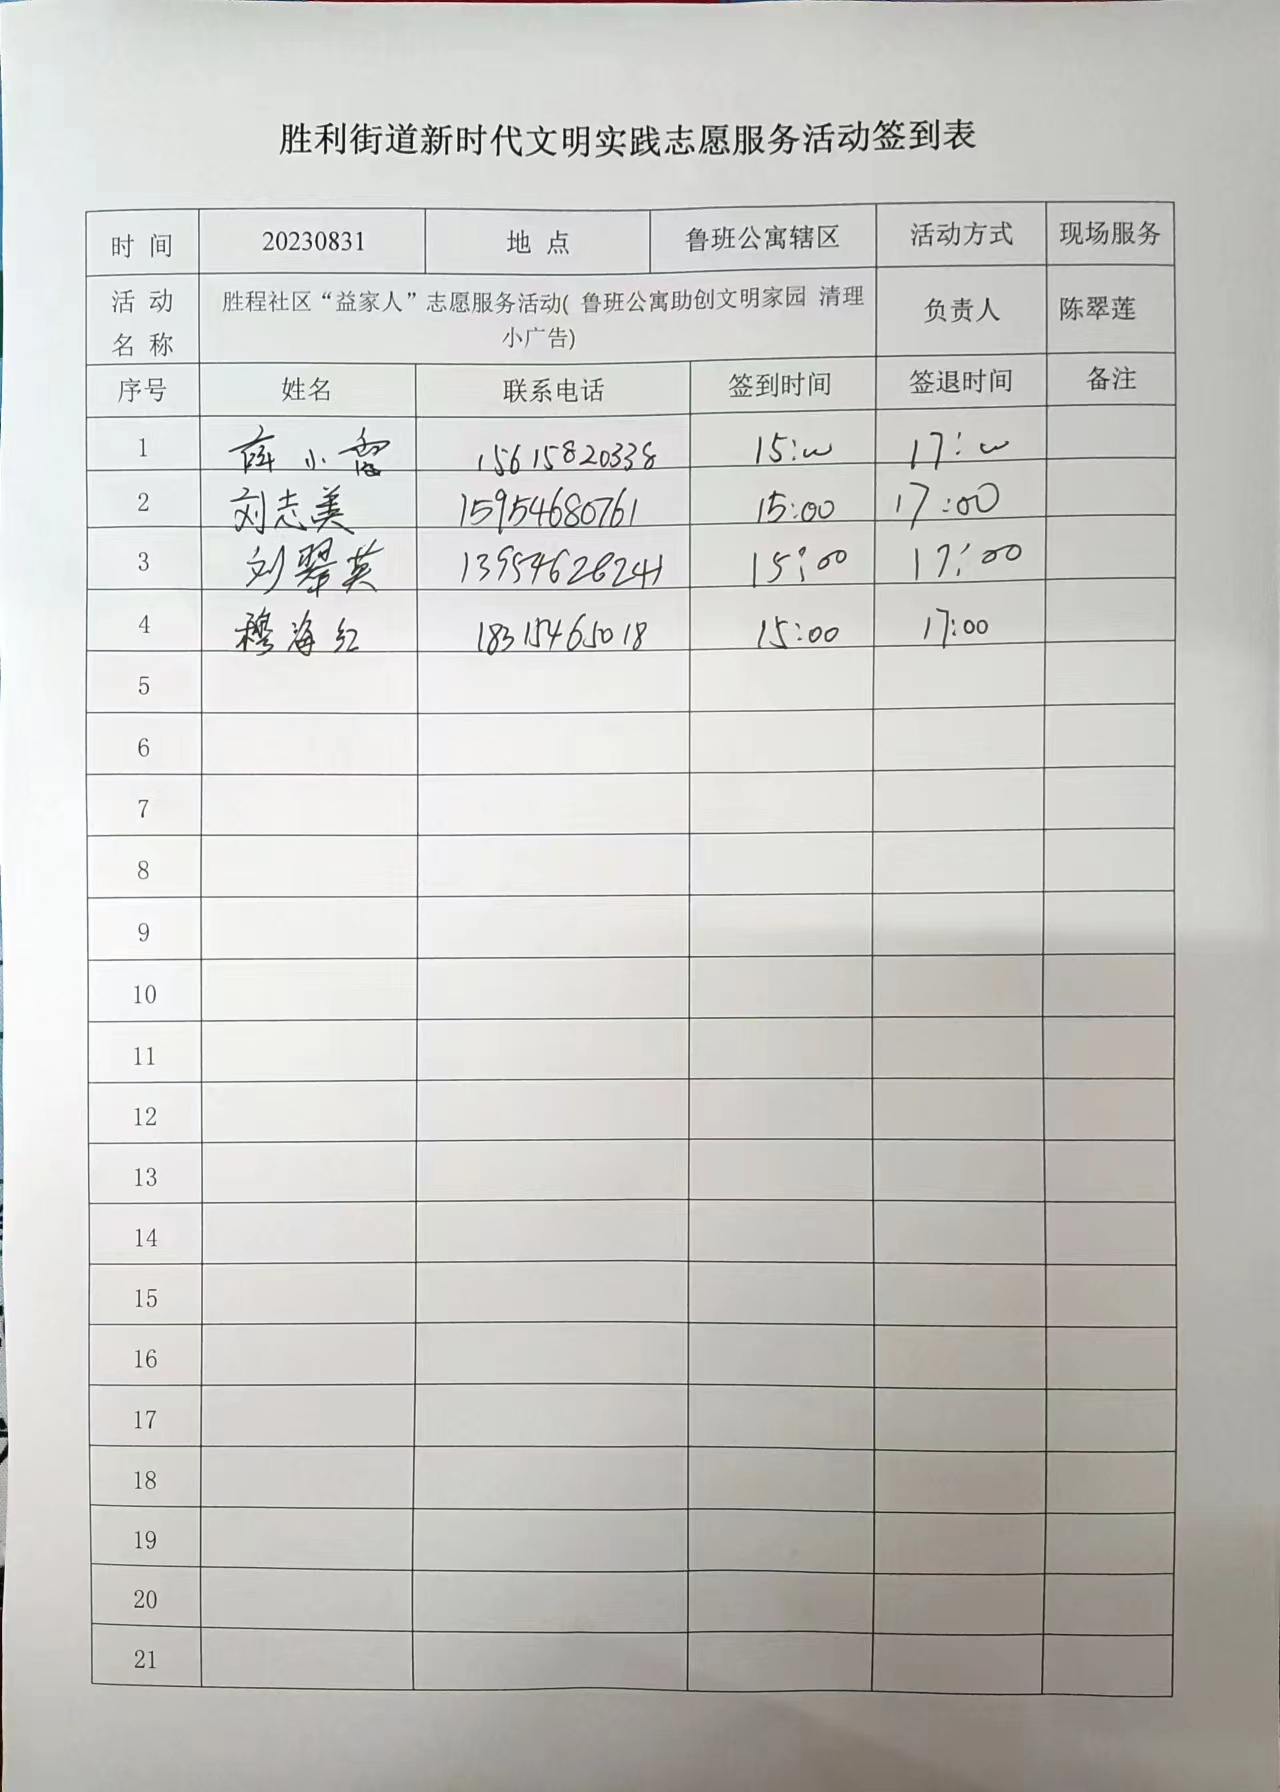 胜利街道新时代文明实践志愿服务活动签到表
时 间 20230831 地 点 鲁班公寓辖区 活动方式 现场服务
活 动 名 称 胜程社区“益家人”志愿服务活动( 鲁班公寓助创文明家园 清理 负责人 陈翠莲
小广告)
序号 姓名 联系电话 签到时间 签退时间 备注
1 薛小霞 15615820338 15:00 17:00
2 刘志美 15954680761 15:00 17:00
3 刘翠英 13954628241 15:00 17:00
4 穆海红 18315465018 15:00 17:00
5
6
7
8
9
10
11
12
13
14
15
16
17
18
19
20
21